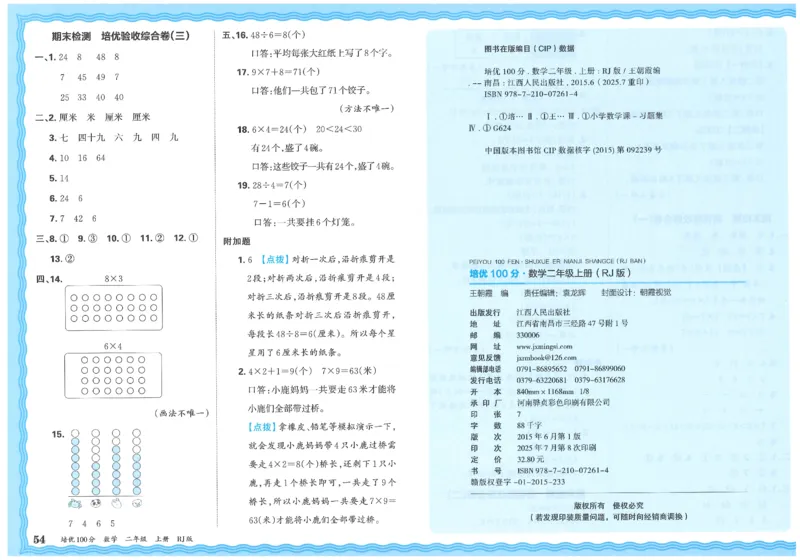 期末检测 培优验收综合卷(三)
一、1. 24 8 48 8
7 45 49 7
25 33 40 40
二、2. 厘米 米 厘米 厘米
3. 七 四十九 六 九 四 九
4. 10 16 64
5. 14
6. 24 6
7. 7 42 6
三、8. ① 9. ③ 10. ① 11. ② 12. ①
13. ②
四、14. 8×3
6×4
(画法不唯一)
15.
7 4 6 5
54 培优100分 数学 二年级 上册 RJ版
五、16. 48÷6=8(个)
口答:平均每张大红纸上写了8个字。
17. 9×7+8=71(个)
口答:他们一共包了71个饺子。
(方法不唯一)
18. 6×4=24(个) 20<24<30
有24个,盛了4碗。
口答:这些饺子一共有24个,盛了4碗。
19. 28÷4=7(个)
7-1=6(个)
口答:一共要挂6个灯笼。
附加题
1. 6 【点拨】对折一次后,沿折痕剪开是
2段;对折两次后,沿折痕剪开是4段;
对折三次后,沿折痕剪开是8段。48厘
米长的纸条对折三次后沿折痕剪开,
每段长48÷8=6(厘米)。所以每个星
星用了6厘米长的纸条。
2. 4×2+1=9(个) 7×9=63(米)
口答:小鹿妈妈一共要走63米才能将
小鹿们全部带过桥。
【点拨】拿橡皮、铅笔等模拟演示一下,
就会发现小鹿妈妈带4只小鹿过桥需
要走4×2=8(个)桥长,还剩下1只小
鹿,再走1个桥长即可,一共走了9个
桥长,所以小鹿妈妈一共要走7×9=
63(米)才能将小鹿们全部带过桥。
图书在版编目(CIP)数据
培优100分.数学二年级.上册:RJ版/王朝霞编
.--南昌:江西人民出版社,2015.6(2025.7重印)
ISBN 978-7-210-07261-4
Ⅰ.①培… Ⅱ.①王… Ⅲ.①小学数学课-习题集
Ⅳ.①G624
中国版本图书馆CIP数据核字(2015)第092239号
PEIYOU 100 FEN · SHUXUE ER NIANJI SHANGCE (RJ BAN)
培优100分·数学二年级上册(RJ版)
王朝霞 编 责任编辑:袁龙辉 封面设计:朝霞视觉
出版发行 江西人民出版社
地址 江西省南昌市三经路47号附1号
邮编 330006
网址 www.jxmingsi.com
意见反馈 jazmbook@126.com
编辑部电话 0791-86895652 0791-86899060
发行电话 0379-63220681 0379-63176628
开本 840mm×1168mm 1/8
承印厂 河南骅贞彩色印刷有限公司
印张 7
字数 88千字
版次 2015年6月第1版
印次 2025年7月第8次印刷
定价 32.80元
书号 ISBN 978-7-210-07261-4
赣版权登字-01-2015-233
版权所有 侵权必究
(若发现印装质量问题,可随时向经销商调换)